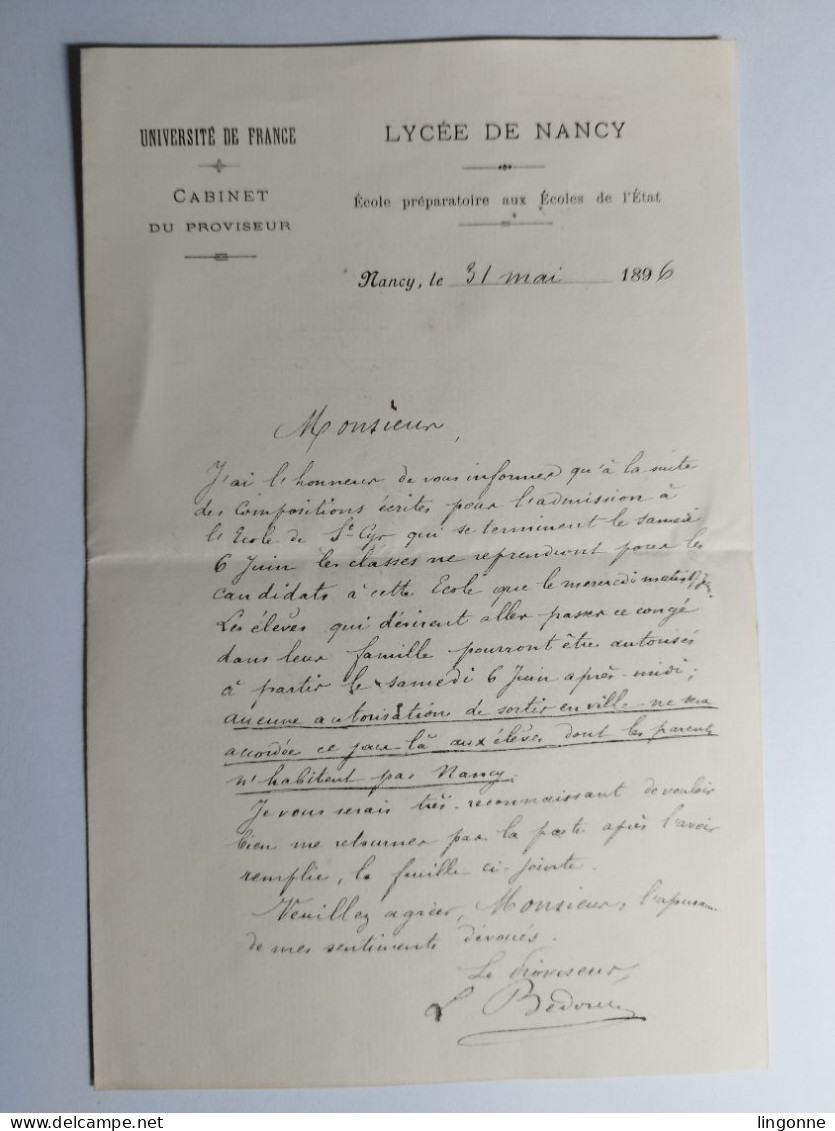 UNIVERSITÉ DE FRANCE
CABINET
DU PROVISEUR
LYCÉE DE NANCY
École préparatoire aux Écoles de l'État
Nancy, le 31 mai 1896
Monsieur,
J'ai l'honneur de vous informer qu'à la suite
des Compositions écrites pour l'admission à
l'Ecole de St-Cyr qui se terminent le samedi
6 Juin les classes ne reprendront pour les
candidats à cette Ecole que le mercredi matin
Les élèves qui désirent aller passer ce congé
dans leur famille pourront être autorisés
à partir le samedi 6 Juin après-midi;
aucune autorisation de sortir en ville ne sera
accordée ce jour là aux élèves dont les parents
n'habitent pas Nancy.
Je vous serais très-reconnaissant de vouloir
bien me retourner par la poste après l'avoir
remplie, la feuille ci-jointe.
Veuillez agréer, Monsieur,
de mes sentiments dévoués.
Le Proviseur,
lingonne